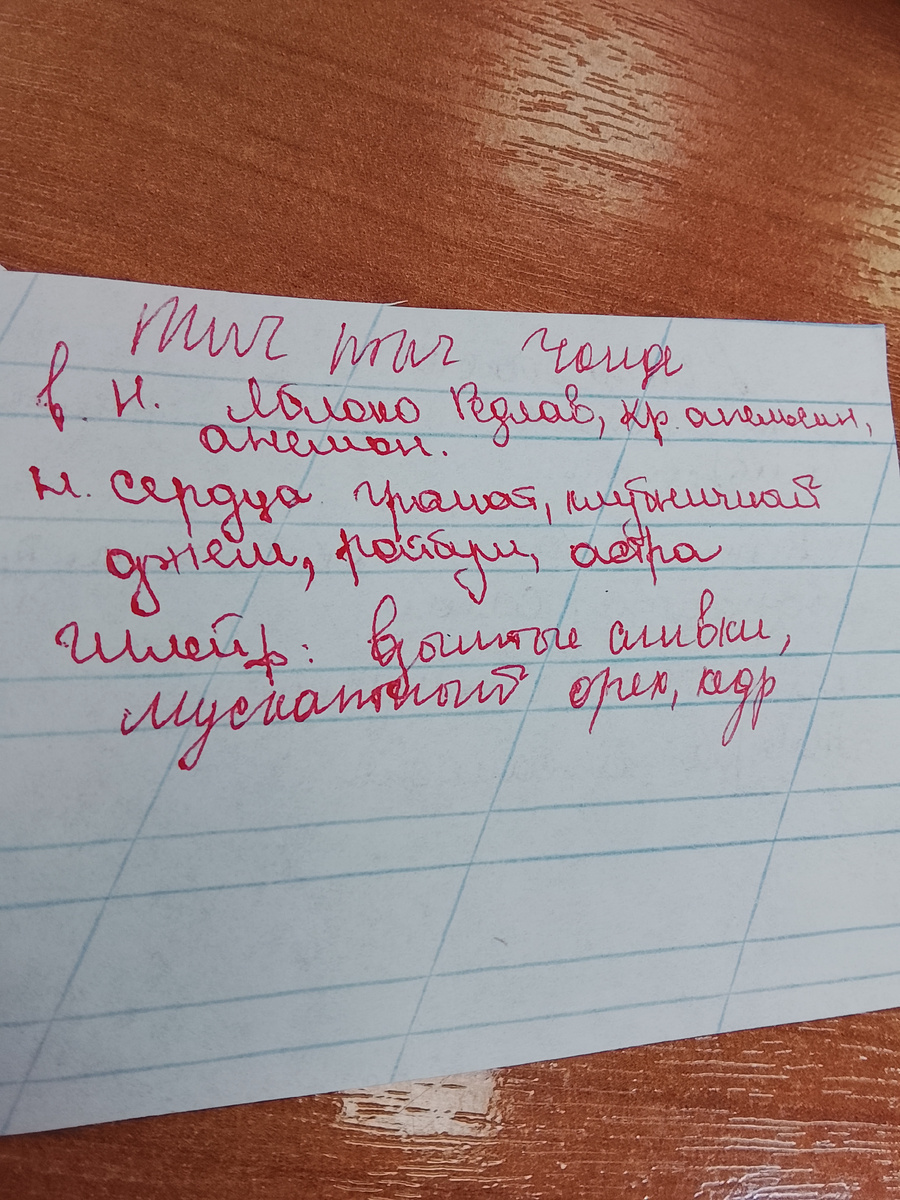 в. н. Яблоко Редлав, кр. апельсин,
анемон.
н. сердца гранат, клубничный
джем, ройбуш, астра
Шлейф: взбитые сливки,
Мускатный орех, кедр